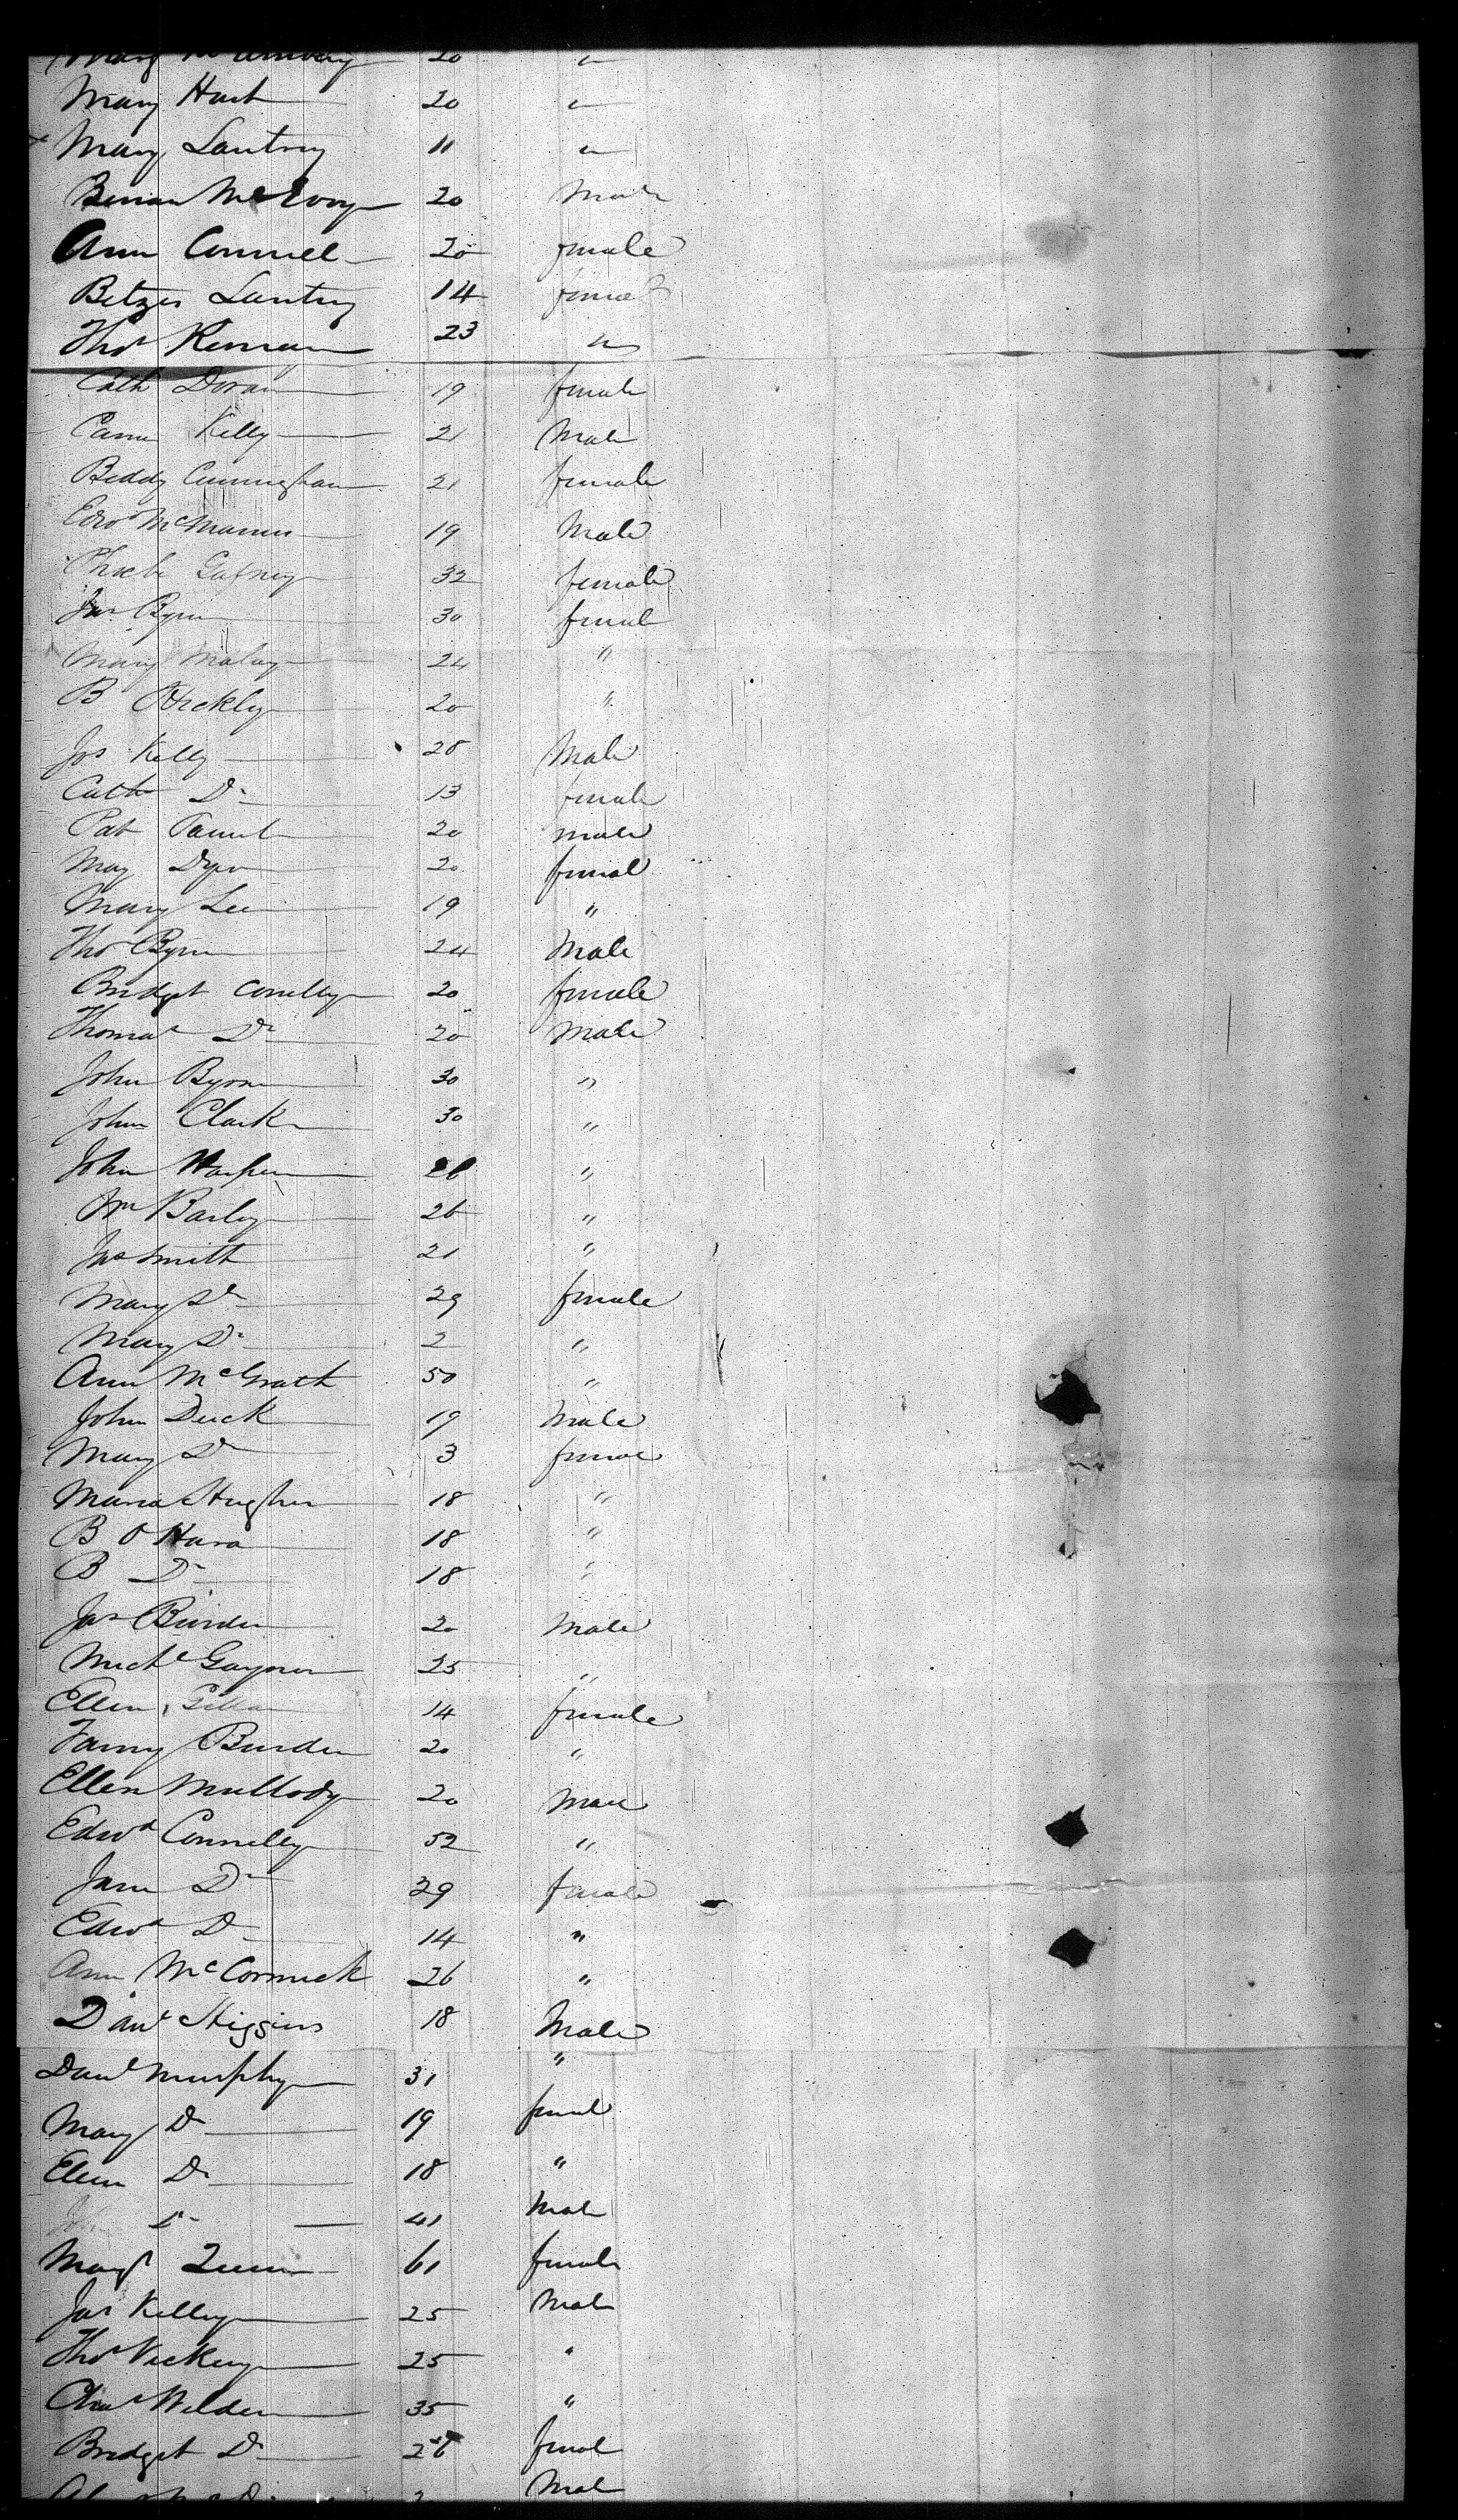 Mary 20 "
Mary Hart 20 "
Mary Lantry 11 "
McEvoy 20 Male
Ann Connell 20 female
Betzes Lantry 14 female
Thos Kernan 23 "
Cath Doran 19 female
Kelly 21 Male
Biddy Cunningham 21 female
Edwd McManus 19 Male
Phoebe Gafney 32 female
Jas Byrn 30 femal
Mary Malay 24 "
B Heckley 20 "
Jos Kelly 28 Male
Cath Do 13 female
Pat 20 male
May 20 femal
Mary Lee 19 "
Thos Byrn 24 Male
Bridget Conelly 20 female
Thomas Do 20 Male
John Byrne 30 "
John Clark 30 "
John Harper 26 "
Wm Barley 26 "
Jas Smith 21 "
Mary Do 29 female
Mary Do 2 "
Ann McGrath 50 "
John Duck 19 Male
Mary Do 3 female
Maria Hughes 18 "
B O Hara 18 "
B Do 18 "
Jas Burden 20 Male
Michl Gaynor 25 "
Ellen 14 female
Fanny Burden 20 "
Ellen Mullody 20 Male
Edwd Connelly 52 "
Jane Do 39 female
Edwd Do 14 "
Ann McCormick 26 "
Danl Higgins 18 Male
Danl Murphy 31 "
Mary Do 19 femal
Ellen Do 18 "
Do 41 Male
Margt Quinn 61 female
Jas Kelly 25 Male
Thos Vickery 25 "
Chas Wilden 35 "
Bridget Do 26 femal
Mal